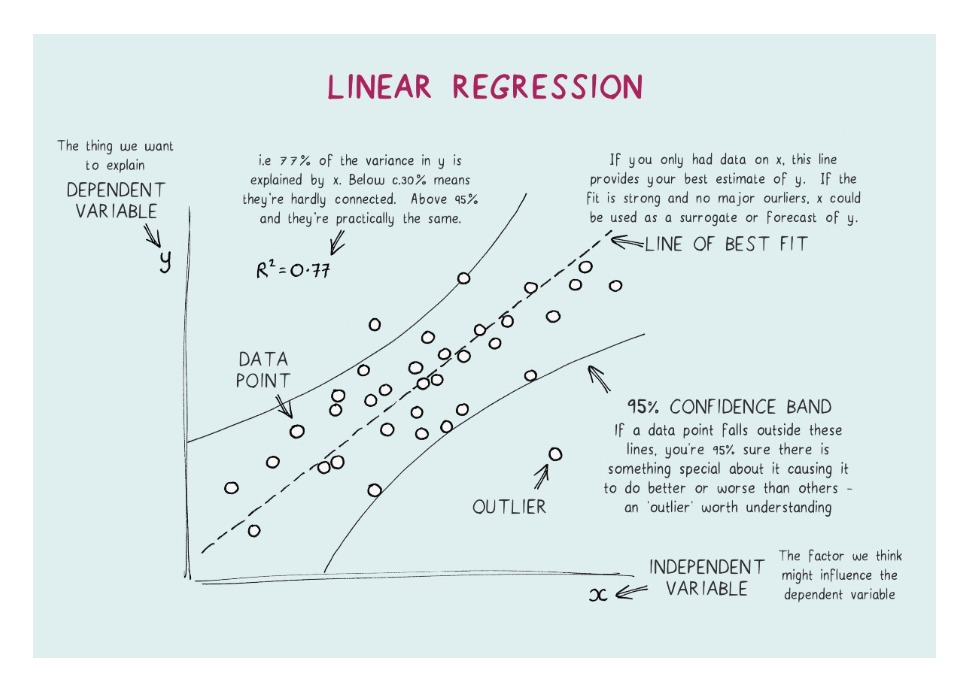 LINEAR REGRESSION
The thing we want
to explain
DEPENDENT
VARIABLE
y
i.e 77% of the variance in y is
explained by x. Below c.30% means
they're hardly connected. Above 95%
and they're practically the same.
R²=0.77
If you only had data on x, this line
provides your best estimate of y. If the
fit is strong and no major ourliers, x could
be used as a surrogate or forecast of y.
LINE OF BEST FIT
DATA
POINT
95% CONFIDENCE BAND
If a data point falls outside these
lines, you're 95% sure there is
something special about it causing it
to do better or worse than others -
an 'outlier' worth understanding
OUTLIER
INDEPENDENT
VARIABLE
x
The factor we think
might influence the
dependent variable